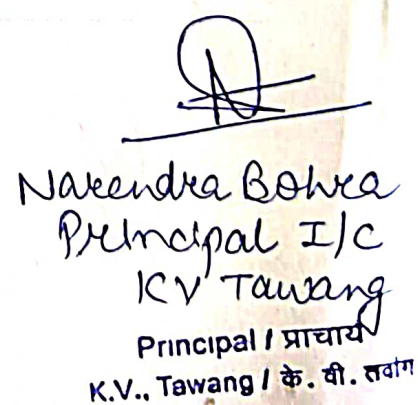 Narendra Bohra
Principal I/C
KV Tawang
Principal / प्राचार्य
K.V., Tawang / के. वी. तवांग